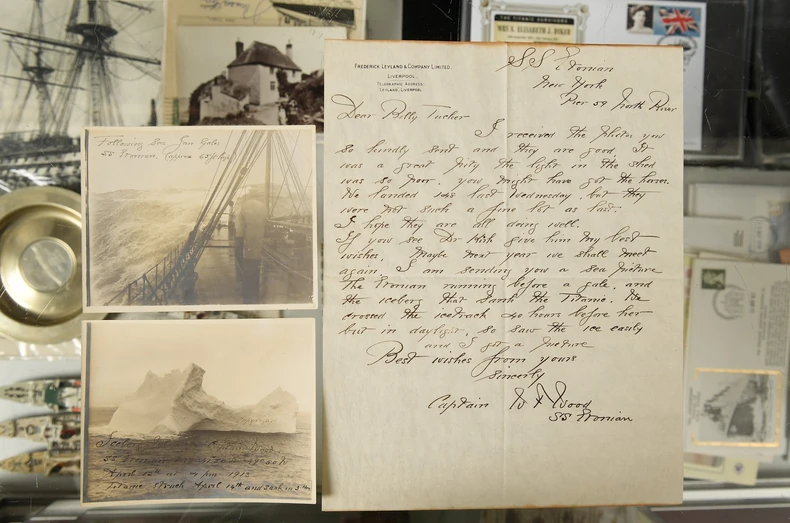 THE TITANIC SURVIVORS
MRS A. ELISABETH J. DOKER
FREDERICK LEYLAND & COMPANY LIMITED.
LIVERPOOL
TELEGRAPHIC ADDRESS:
LEYLAND, LIVERPOOL
SS Etonian
New York
Pier 59 North River
Dear Billy Tucker
I received the photos you
so kindly sent and they are good It
was a great pity the light in the shed
was so poor. you might have got the horses.
We landed 148 last Wednesday, but they
were not such a fine lot as last.
I hope they are all doing well.
If you see Dr Kirk give him my best
wishes, Maybe next year we shall meet
again. I am sending you a sea picture
The Etonian running before a gale, and
the iceberg that sank the Titanic. We
crossed the icetrack 40 hours before her
but in daylight, so saw the ice easily
and I got a picture
Best wishes from yours
sincerely
Captain W F Wood
SS Etonian
Following Sea
SS Etonian
Iceberg taken by Captain
SS Etonian
April 12th at 4 pm
Titanic struck April 14th and sank in 3 Hrs